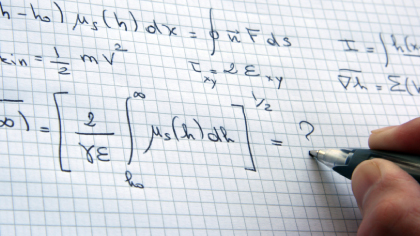 h-h₀) μₛ(h) dx = ∮ n⃗ F⃗ ds
I = ∫ h(x
kin = 1/2 mv²
τxy = 2 εxy
∇h = Σ(
∞) = [2/γε ∫h₀^∞ μₛ(h) dh]^1/2 = ?